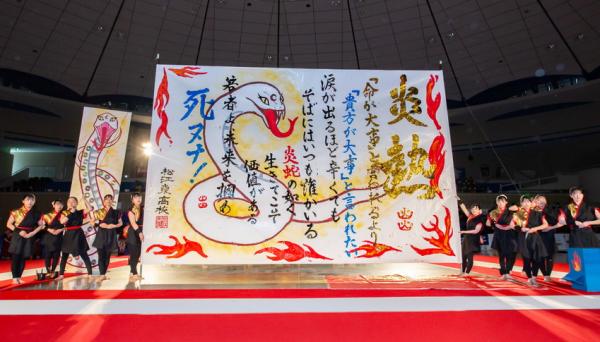 炎動
「命が大事」と言われるより
「貴方が大事」と言われたい
涙が出るほど辛くても
そばにはいつも誰かがいる
炎蛇の如く
生きてこそ
価値がある
若者よ未来を掴め
死ヌナ！
松江東高校